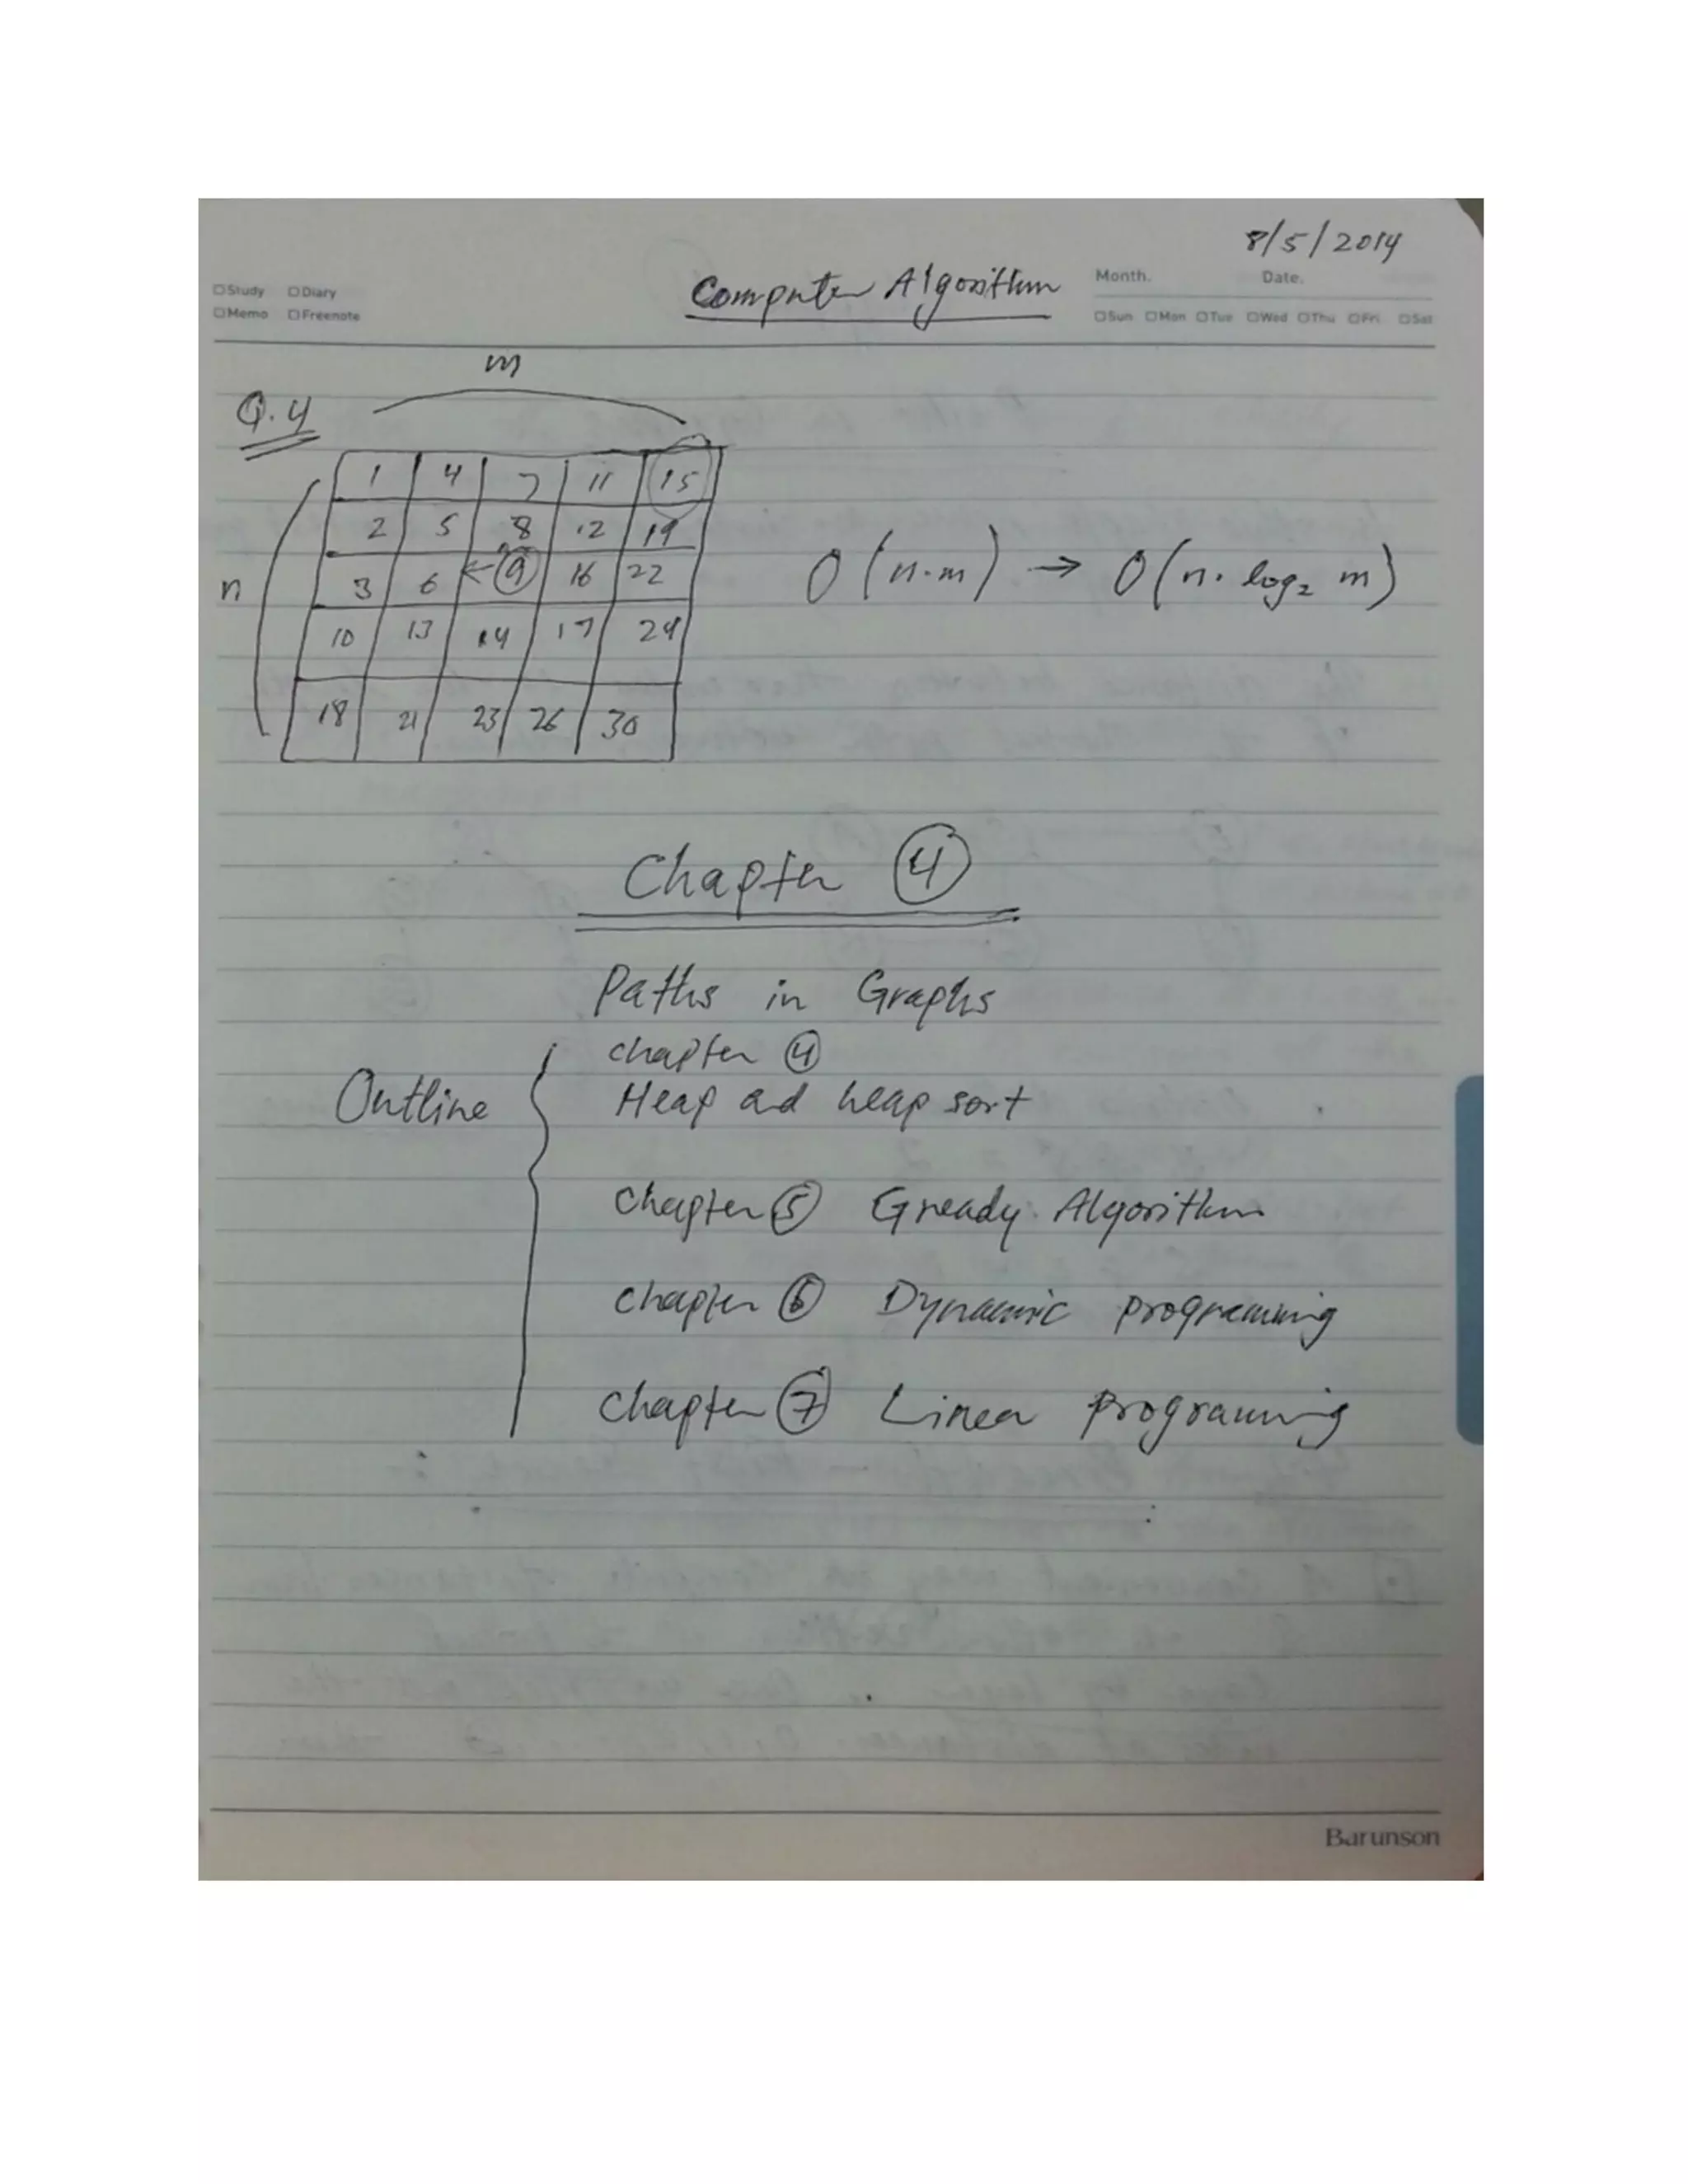 8/5/2014
Computer Algorithm
Month. Date.
Study Diary
Memo Freenote
Sun Mon Tue Wed Thu Fri Sat
m
Q.4
1 4 7 11 15
2 5 8 12 19
n 3 6 ←9 16 22
O(n·m) → O(n·log₂ m)
10 13 14 17 24
18 21 23 26 30
Chapter 4
Paths in Graphs
chapter 4
Outline
Heap ad heap sort
Chapter 5 Gready Algorithm
Chapter 6 Dynamic programing
Chapter 7 Linear programing
Barunson